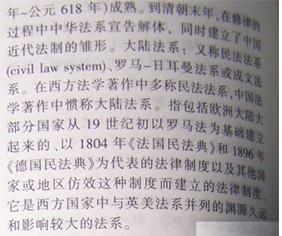 年~公元 618 年)成熟。到清朝末年,在修律的
过程中中华法系宣告解体，同时建立了中国
近代法制的雏形。大陆法系：又称民法法系
(civil law system)、罗马-日耳曼法系或成文法
系。在西方法学著作中多称民法法系,中国法
学著作中惯称大陆法系。指包括欧洲大陆大
部分国家从 19 世纪初以罗马法为基础建立
起来的、以 1804 年《法国民法典》和 1896 年
《德国民法典》为代表的法律制度以及其他国
家或地区仿效这种制度而建立的法律制度。
它是西方国家中与英美法系并列的渊源久远
和影响较大的法系。